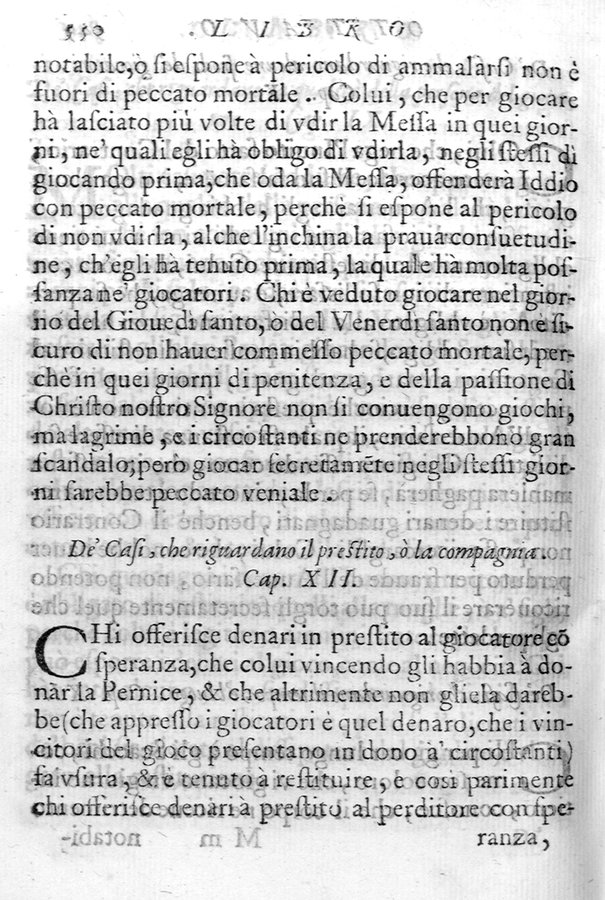 550 L I B R O
notabile, ò si espone à pericolo di ammalarsi non è
fuori di peccato mortale. Colui, che per giocare
hà lasciato più volte di vdir la Messa in quei gior-
ni, ne' quali egli hà obligo di vdirla, negli stessi dì
giocando prima, che oda la Messa, offenderà Iddio
con peccato mortale, perchè si espone al pericolo
di non vdirla, alche l'inchina la praua consuetudi-
ne, ch'egli hà tenuto prima, la quale hà molta pos-
sanza ne' giocatori. Chi è veduto giocare nel gior-
no del Giouedì santo, ò del Venerdì santo non è si-
curo di non hauer commesso peccato mortale, per-
chè in quei giorni di penitenza, e della passione di
Christo nostro Signore non si conuengono giochi,
ma lagrime, e i circostanti ne prenderebbono gran
scandalo; però giocar secretamẽte negli stessi gior-
ni sarebbe peccato veniale.
De' Casi, che riguardano il prestito, ò la compagnia.
Cap. XII.
CHi offerisce denari in prestito al giocatore cõ
speranza, che colui vincendo gli habbia à do-
nar la Pernice, & che altrimente non gliela dareb-
be (che appresso i giocatori è quel denaro, che i vin-
citori del gioco presentano in dono a' circostanti)
fa vsura, & è tenuto à restituire, e così parimente
chi offerisce denari à prestito al perditore con spe-
ranza,